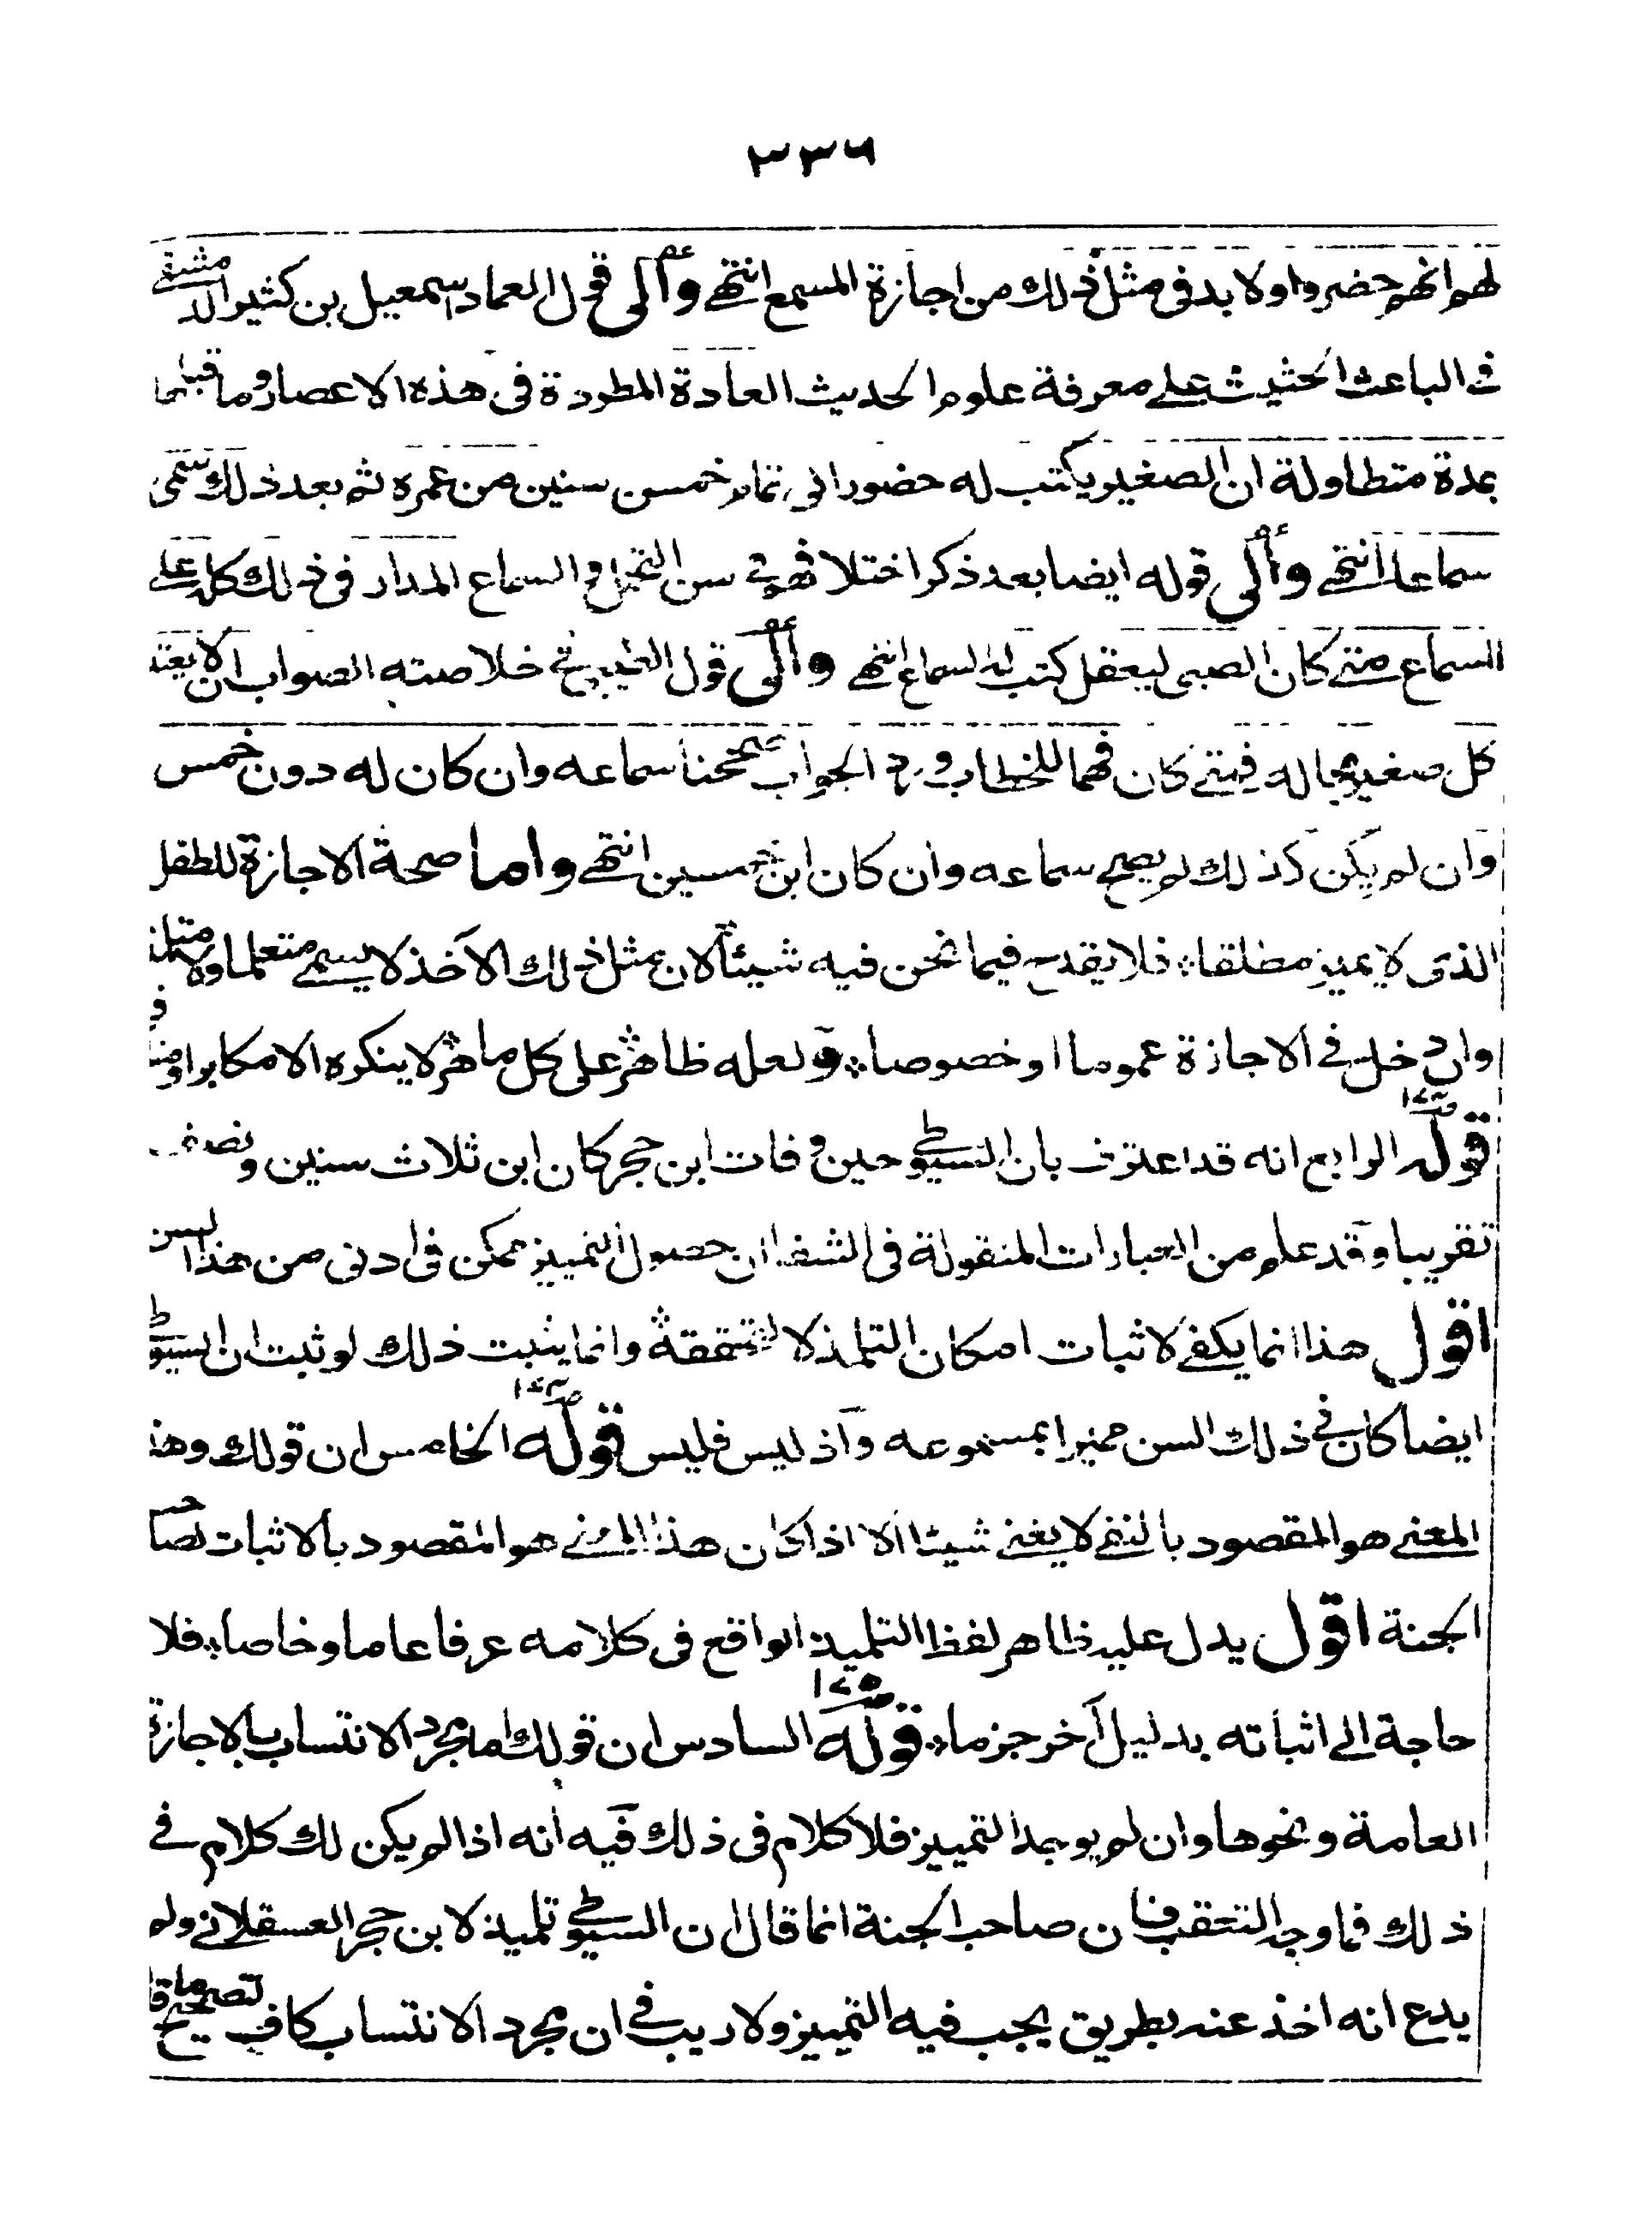 ٣٣٦
لهم انهم حضروا ولا بد في مثل ذلك من اجازة المسمع انتهى وألى قول العماد اسمعيل بن كثير الدمشقي
في الباعث الحثيث على معرفة علوم الحديث العادة المطردة في هذه الاعصار وما قبلها
بمدة متطاولة ان الصغير يكتب له حضور الى تمام خمس سنين من عمره ثم بعد ذلك سمى
سماعا انتهى وألى قوله ايضا بعد ذكر اختلافهم في سن التحمل والسماع المدار في ذلك كله على
السماع متى كان الصبي يعقل كتب له السماع انتهى وألى قول الطيبي في خلاصته الصواب ان يعتبر
كل صغير بحاله فمتى كان فهما للخطاب ورد الجواب صححنا سماعه وان كان له دون خمس
وان لم يكن كذلك لم يصح سماعه وان كان ابن خمسين انتهى واما صحة الاجازة للطفل
الذى لا يميز مطلقا فلا يقدح فيما نحن فيه شيئا لان مثل ذلك الآخذ لا يسمى متعلما ولا متلمذا
وان دخل في الاجازة عموما او خصوصا ولعله ظاهر على كل ماهر لا ينكره الا مكابر او
قوله الرابع انه قد اعترف بان السيوطي حين وفات ابن حجر كان ابن ثلاث سنين ونصف
تقريبا وقد علم من العبارات المنقولة في الشفا ان حصول التمييز ممكن في ادنى من هذا السن
اقول هذا انما يكفى لاثبات امكان التلمذ لا لتحققه وانما يثبت ذلك لو ثبت ان السيوطي
ايضا كان في ذلك السن مميزا بمسموعه واذ ليس فليس قوله الخامس ان قولك وهذا
المعنى هو المقصود بالنفى لا يغنى شيئا الا اذا كان هذا المعنى هو المقصود بالاثبات لصاحب
الجنة اقول يدل عليه ظاهر لفظ التلميذ الواقع في كلامه عرفا عاما وخاصا فلا
حاجة الى اثباته بدليل آخر جزما قوله السادس ان قولك اما مجرد الانتساب بالاجازة
العامة ونحوها وان لم يوجد التمييز فلا كلام في ذلك فيه انه اذا لم يكن لك كلام في
ذلك فما وجه التعقب فان صاحب الجنة انما قال ان السيوطي تلميذ لابن حجر العسقلاني ولم
يدع انه اخذ عنه بطريق يجب فيه التمييز ولا ريب في ان مجرد الانتساب كاف لتصحيح ما قا